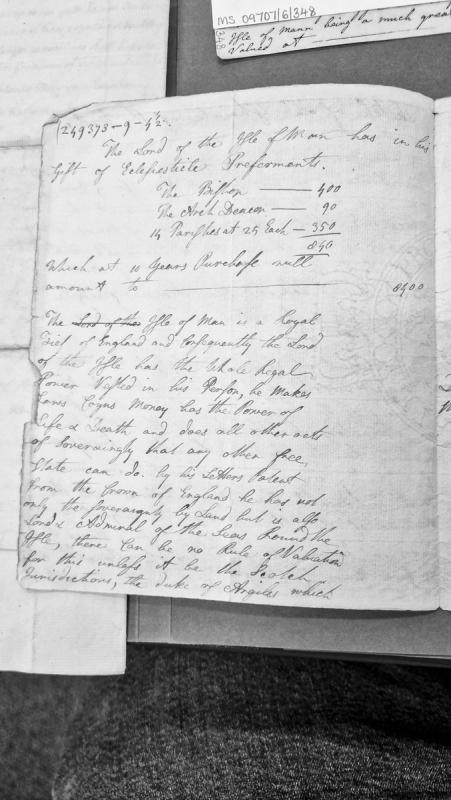 MS 09707/6/348
348
Isle of Mann being a much grea
Valued at
249373-9-4½
The Lord of the Isle of Man has in his
Gift of Eclesiasticle Preferments.
The Bishop — 400
The Arch Deacon — 90
14 Parishes at 25 Each — 350
840
Which at 10 Years Purchase will
amount to — 8400
The Lord of the Isle of Man is a Royal
Fief of England and Consequently the Lord
of the Isle has the Whole Regal
Power Vested in his Person, he Makes
Laws Coyns Money has the Power of
Life & Death and does all other acts
of Soveraingty that any other free
State can do. by his Letters Patent
from the Crown of England he has not
only the Soveraignty by Land but is also
Lord & Admiral of the Seas Round the
Isle, there Can be no Rule of Valuation
for this unless it be the Scotch
Jurisdictions, the duke of Argiles which